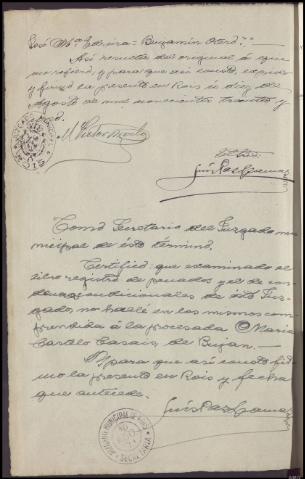 José Mª Edreira = Benjamín Otero ..
Así resulta del original á que
me refiero, y para que así conste, expido
y firmo la presente en Rois á diez de
Agosto de mil novecientos treinta y
M. Victor
Luis Paz
Como Secretario del Juzgado mu
nicipal de este término.
Certifico: que examinado el
libro registro de penados y el de con
denas condicionales de este Juz-
gado, no hallé en los mismos com
prendida á la procesada Maria
Castelo Casais de Buján.
Y para que así conste fir
mo la presente en Rois y fecha
que antecede.
Luis Paz
JUZGADO MUNICIPAL DE ROIS
SECRETARIA